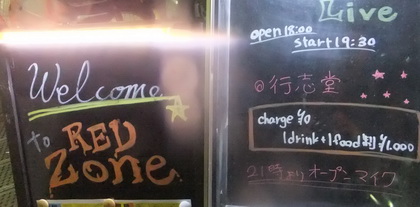 Welcome
to RED
Zone
Live
open 18:00
start 19:30
@行志堂
charge ¥0
1drink+1food割¥1,000
21時よりオープンマイク